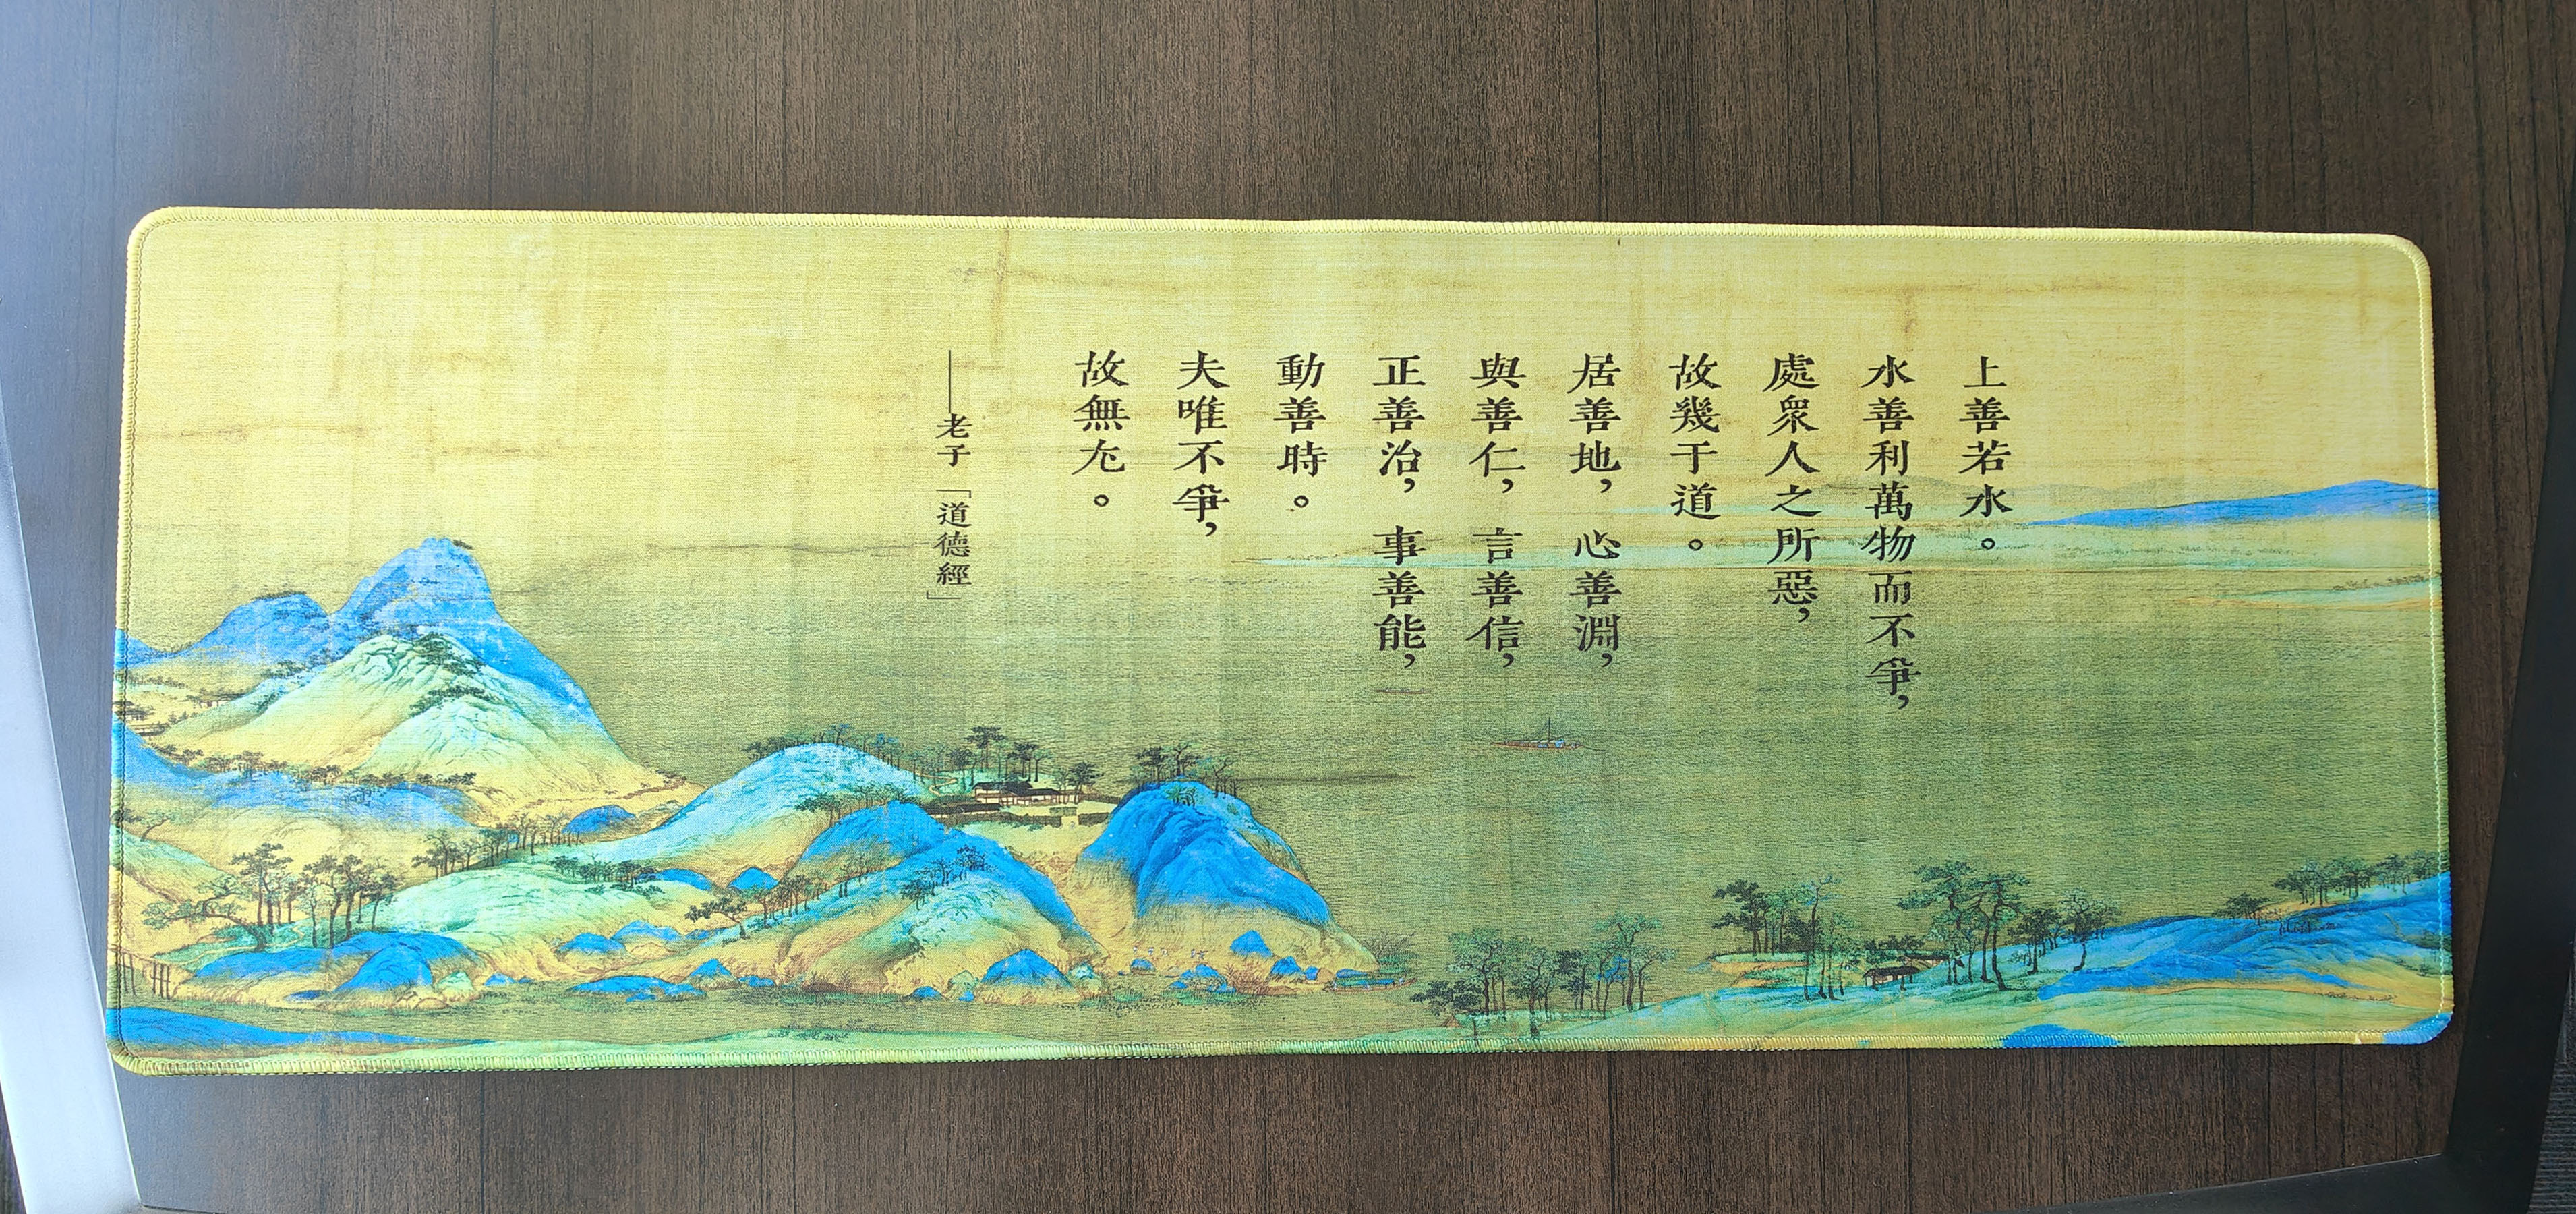 上善若水。
水善利萬物而不爭，
處衆人之所惡，
故幾于道。
居善地，心善淵，
與善仁，言善信，
正善治，事善能，
動善時。
夫唯不爭，
故無尤。
——老子「道德經」